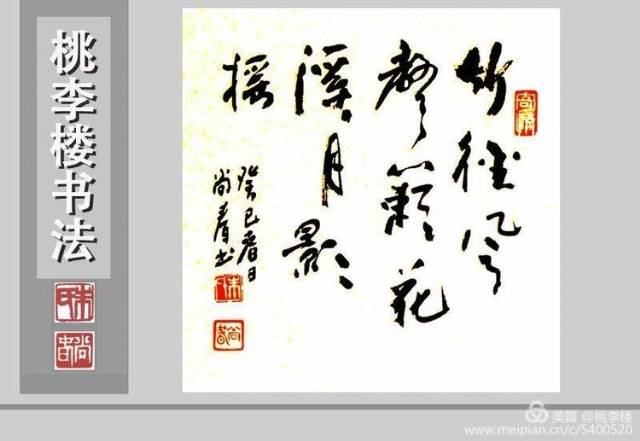 桃李楼书法
竹径风
聲籟花
溪月影
摇
癸巳春日
尚春书
美篇 @桃李楼
www.meipian.cn/c/5400520